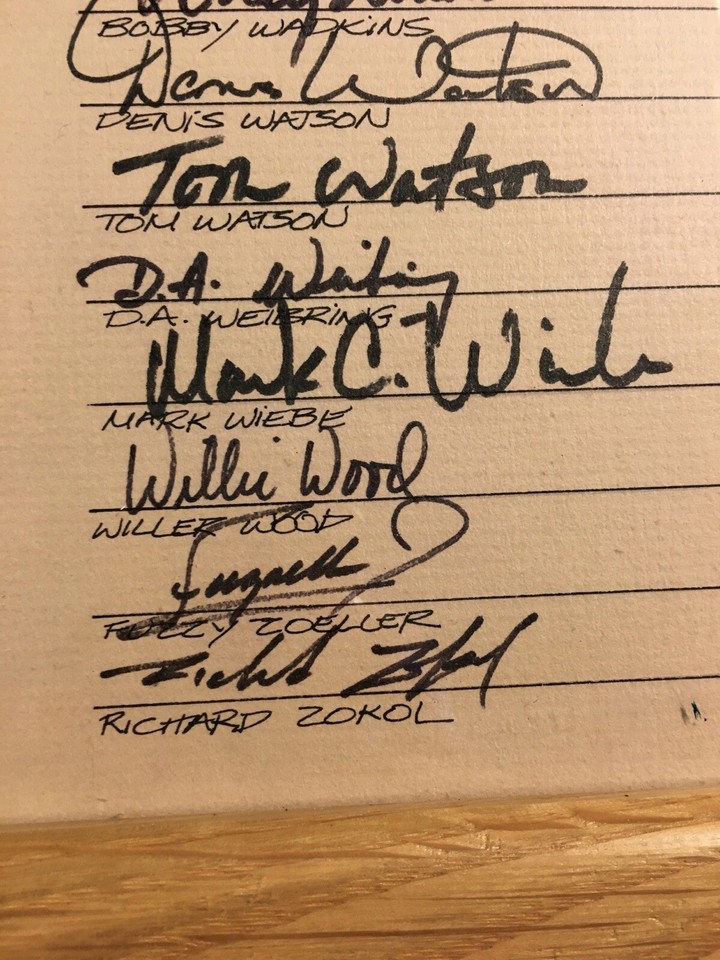 BOBBY WADKINS
Denis Watson
DENIS WATSON
Tom Watson
TOM WATSON
D.A. Weibring
D.A. WEIBRING
Mark C. Wiebe
MARK WIEBE
Willie Wood
WILLER WOOD
FUZZY ZOELLER
Richard Zokol
RICHARD ZOKOL